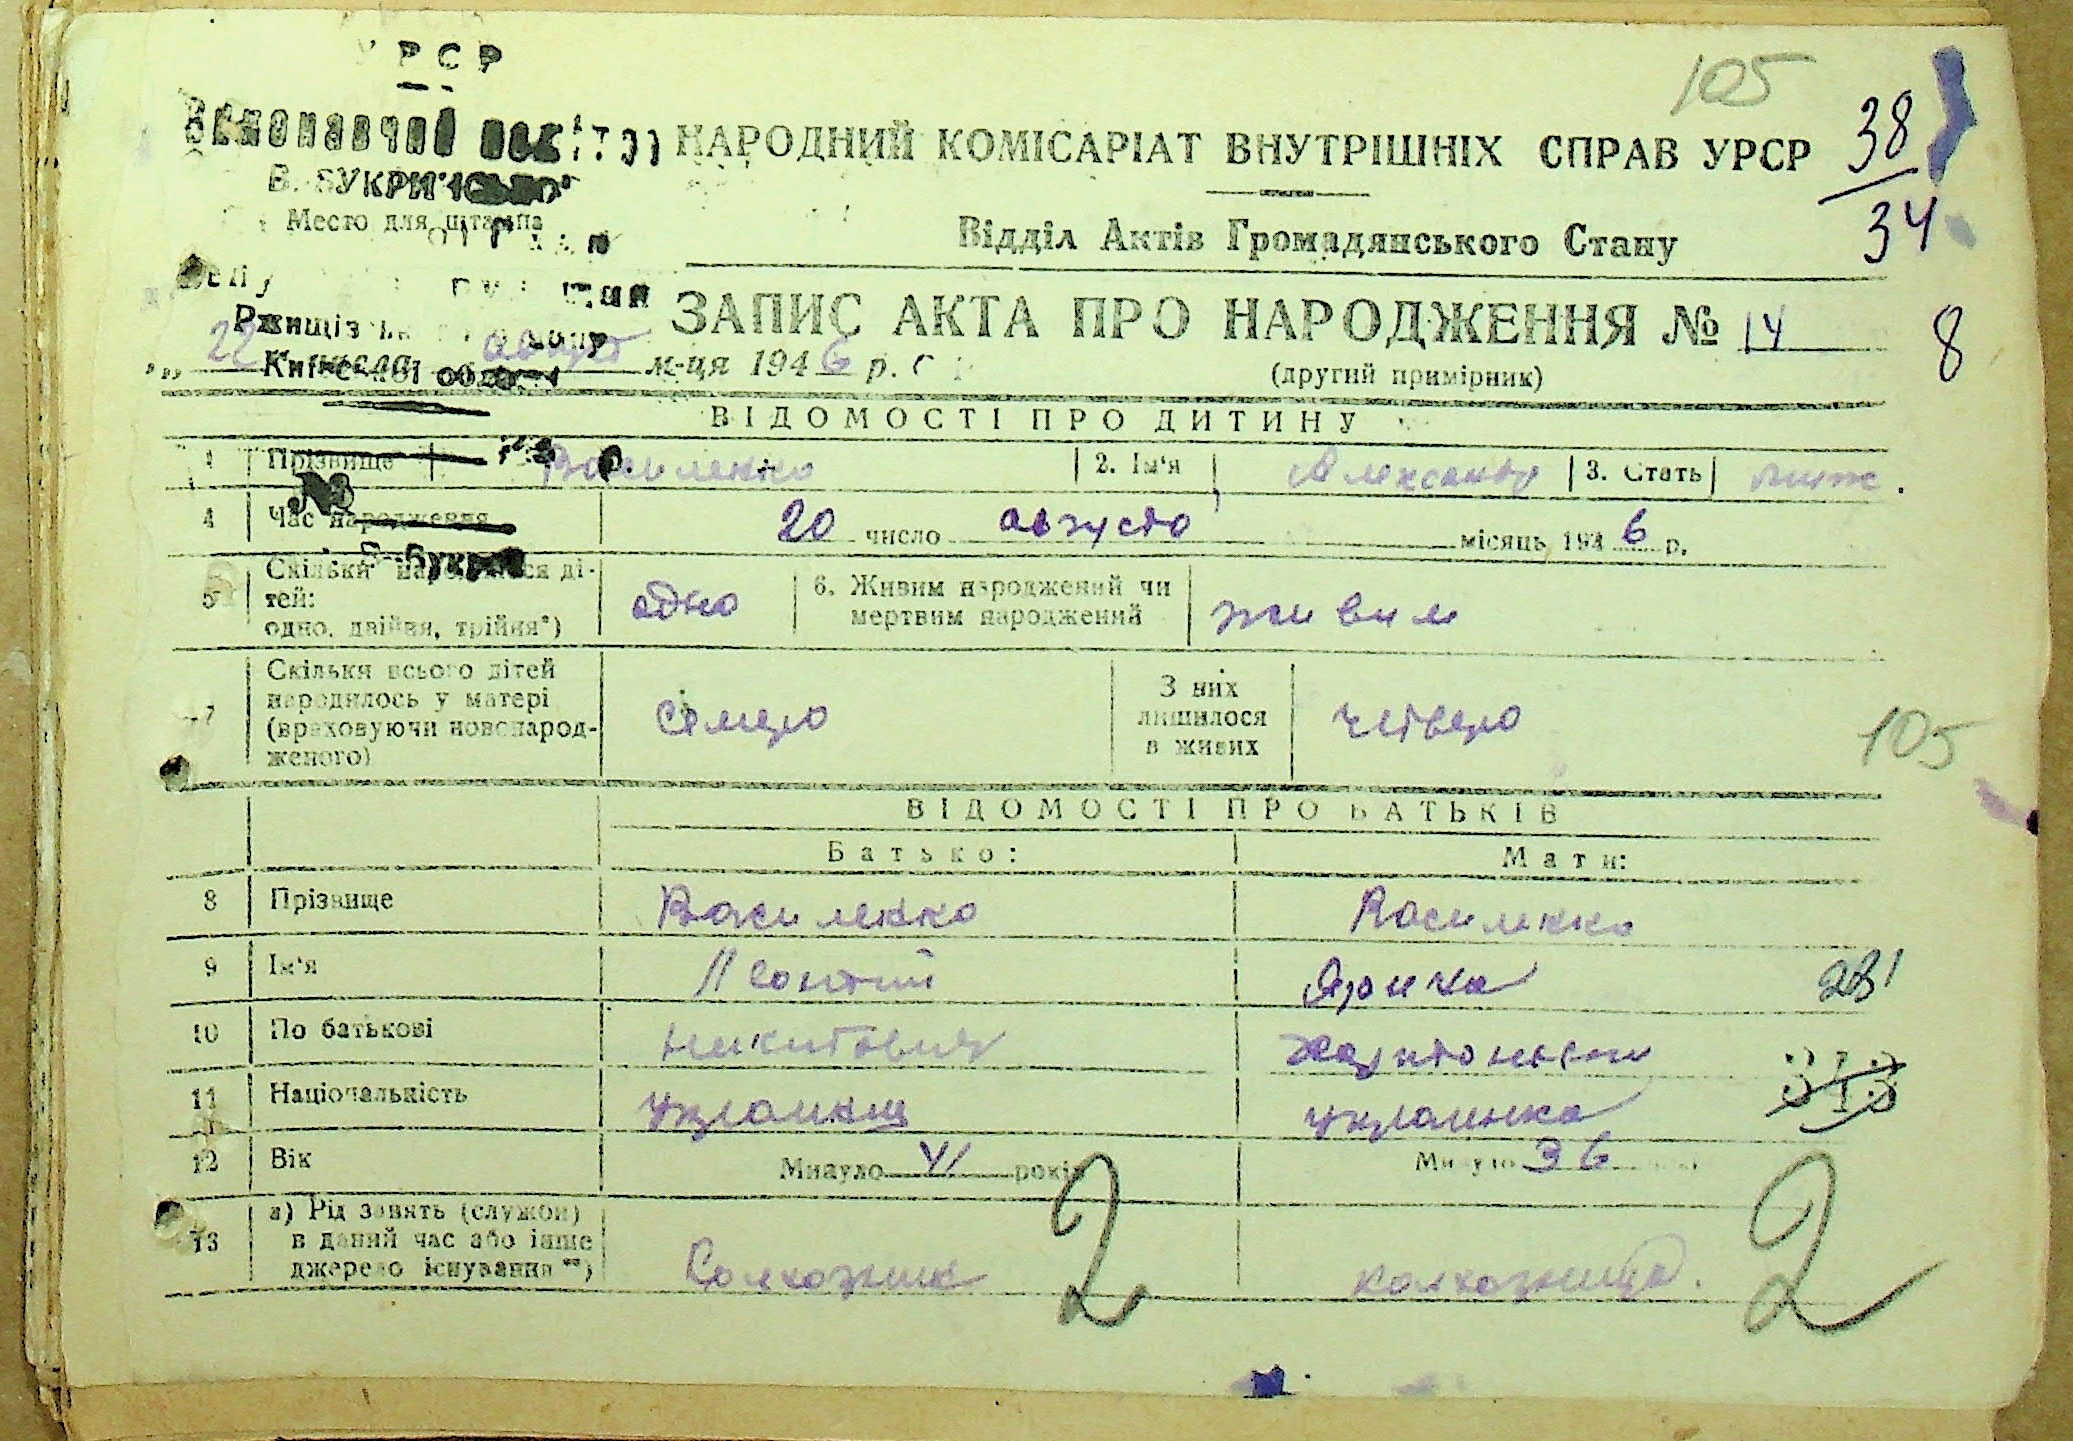 УРСР
Виконавчий комітет
В. БУКРИНСЬКО
Место для штампа
Ржищів
105
38
34
НАРОДНИЙ КОМІСАРІАТ ВНУТРІШНІХ СПРАВ УРСР
Відділ Актів Громадянського Стану
ЗАПИС АКТА ПРО НАРОДЖЕННЯ № 14
8
„ 22 август м-ця 1946 р.
(другий примірник)
ВІДОМОСТІ ПРО ДИТИНУ
1 Прізвище Василенко 2. Ім'я Александр 3. Стать муж.
№
4 Час народження 20 число августа місяць 1946 р.
5 Скільки народилося дітей: одно, двійня, трійня*) одно 6. Живим народжений чи мертвим народжений живим
7 Скільки всього дітей народилось у матері (враховуючи новонародженого) семеро З них лишилося в живих четверо
105
ВІДОМОСТІ ПРО БАТЬКІВ
Батько: Мати:
8 Прізвище Василенко Василенко
9 Ім'я Леонтий Ярина 281
10 По батькові Никитович Харитоновна
11 Національність украинец украинка 313
12 Вік Минуло 41 років Минуло 36
13 а) Рід занять (служби) в даний час або інше джерело існування **) Колхозник колхозница.
2 2